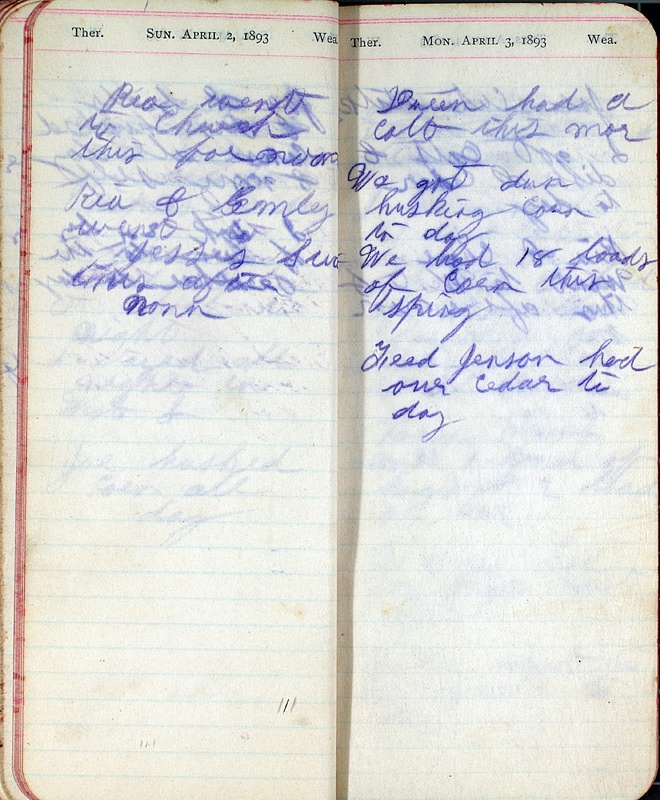 Ther. SUN. APRIL 2, 1893 Wea
Ria went
to Church
this for noon
Ria & Emly
went to
Jessis
this after
nonn
Joe husked
Coen all
day
Ther. MON. APRIL 3, 1893 Wea.
Queen had a
colt this mor
We got dun
husking Coen
to day
We had 18 loads
of Coen this
spring
Feed Jenson had
our Cedar to
day